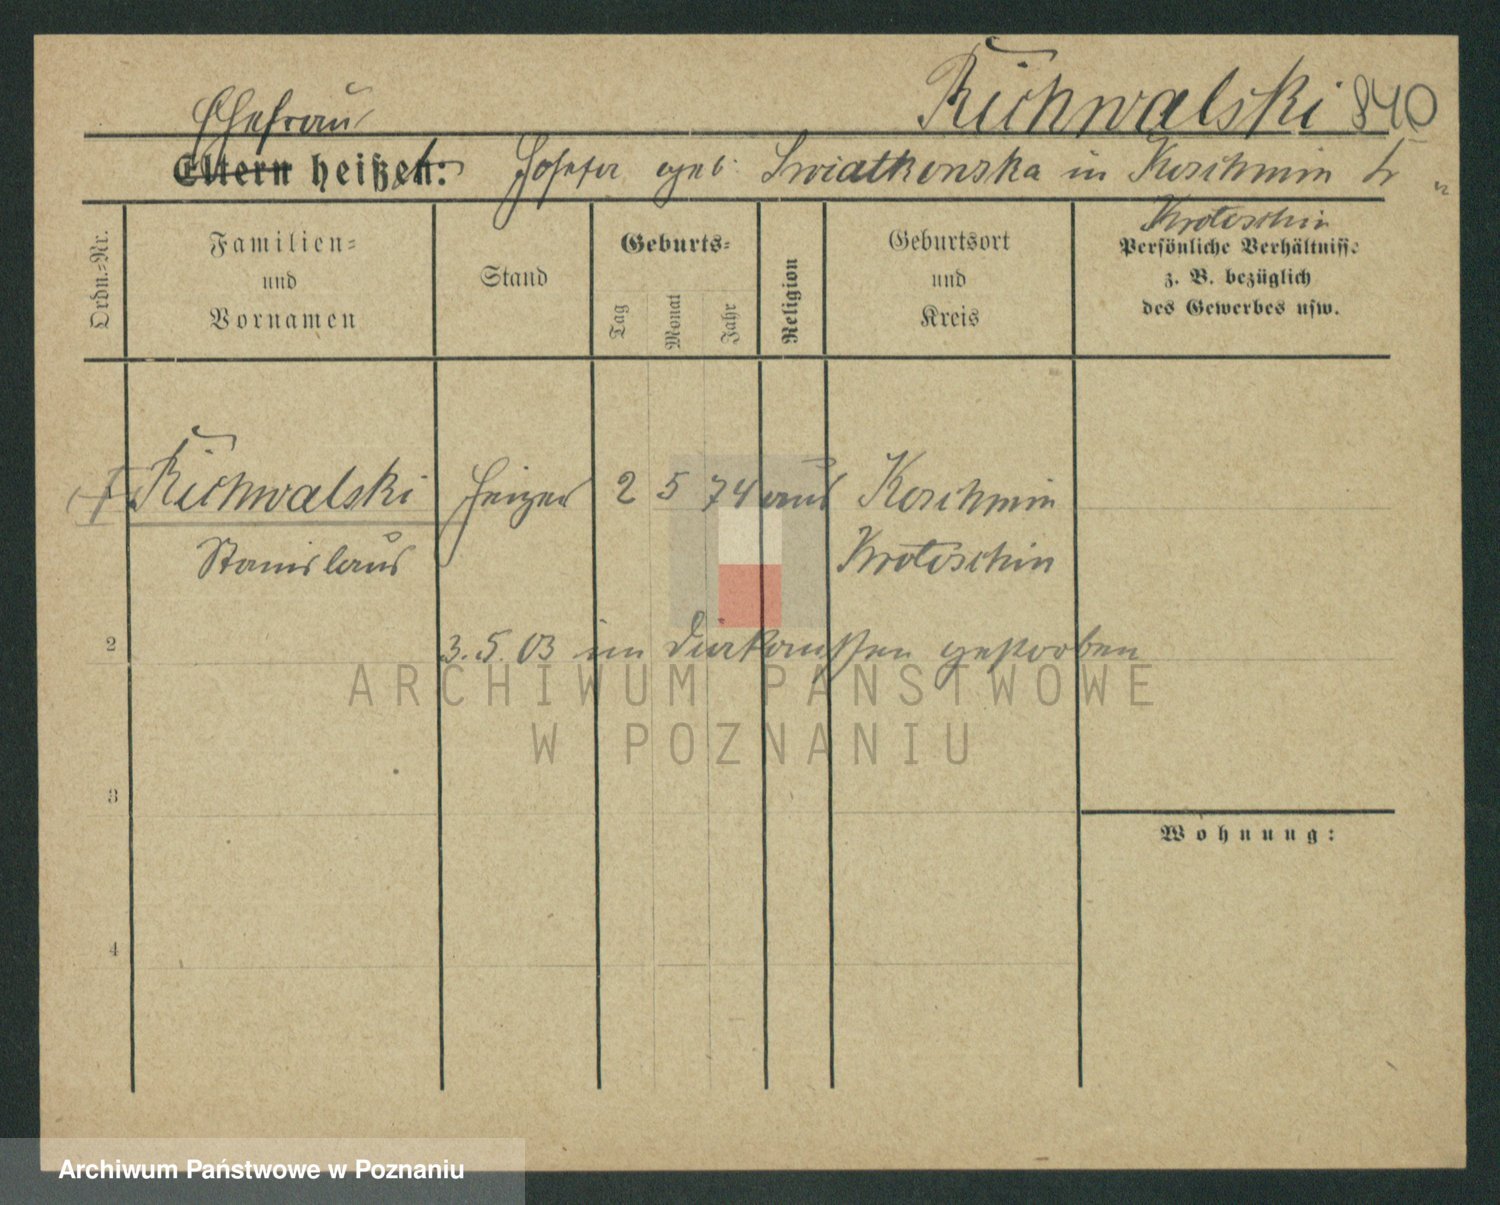 Richwalski 840
Ehefrau
Eltern heißt: Josefa geb. Swiatkowska in Koschmin Kr
Krotoschin
Ordn.=Nr.
Familien=
und
Vornamen
Stand
Geburts=
Tag
Monat
Jahr
Religion
Geburtsort
und
Kreis
Persönliche Verhältnisse
z. B. bezüglich
des Gewerbes usw.
Richwalski Heizer 2 5 74 aus Koschmin
Stanislaus Krotoschin
2
3.5.03 im gestorben
ARCHIWUM PAŃSTWOWE
W POZNANIU
3
Wohnung:
4
Archiwum Państwowe w Poznaniu